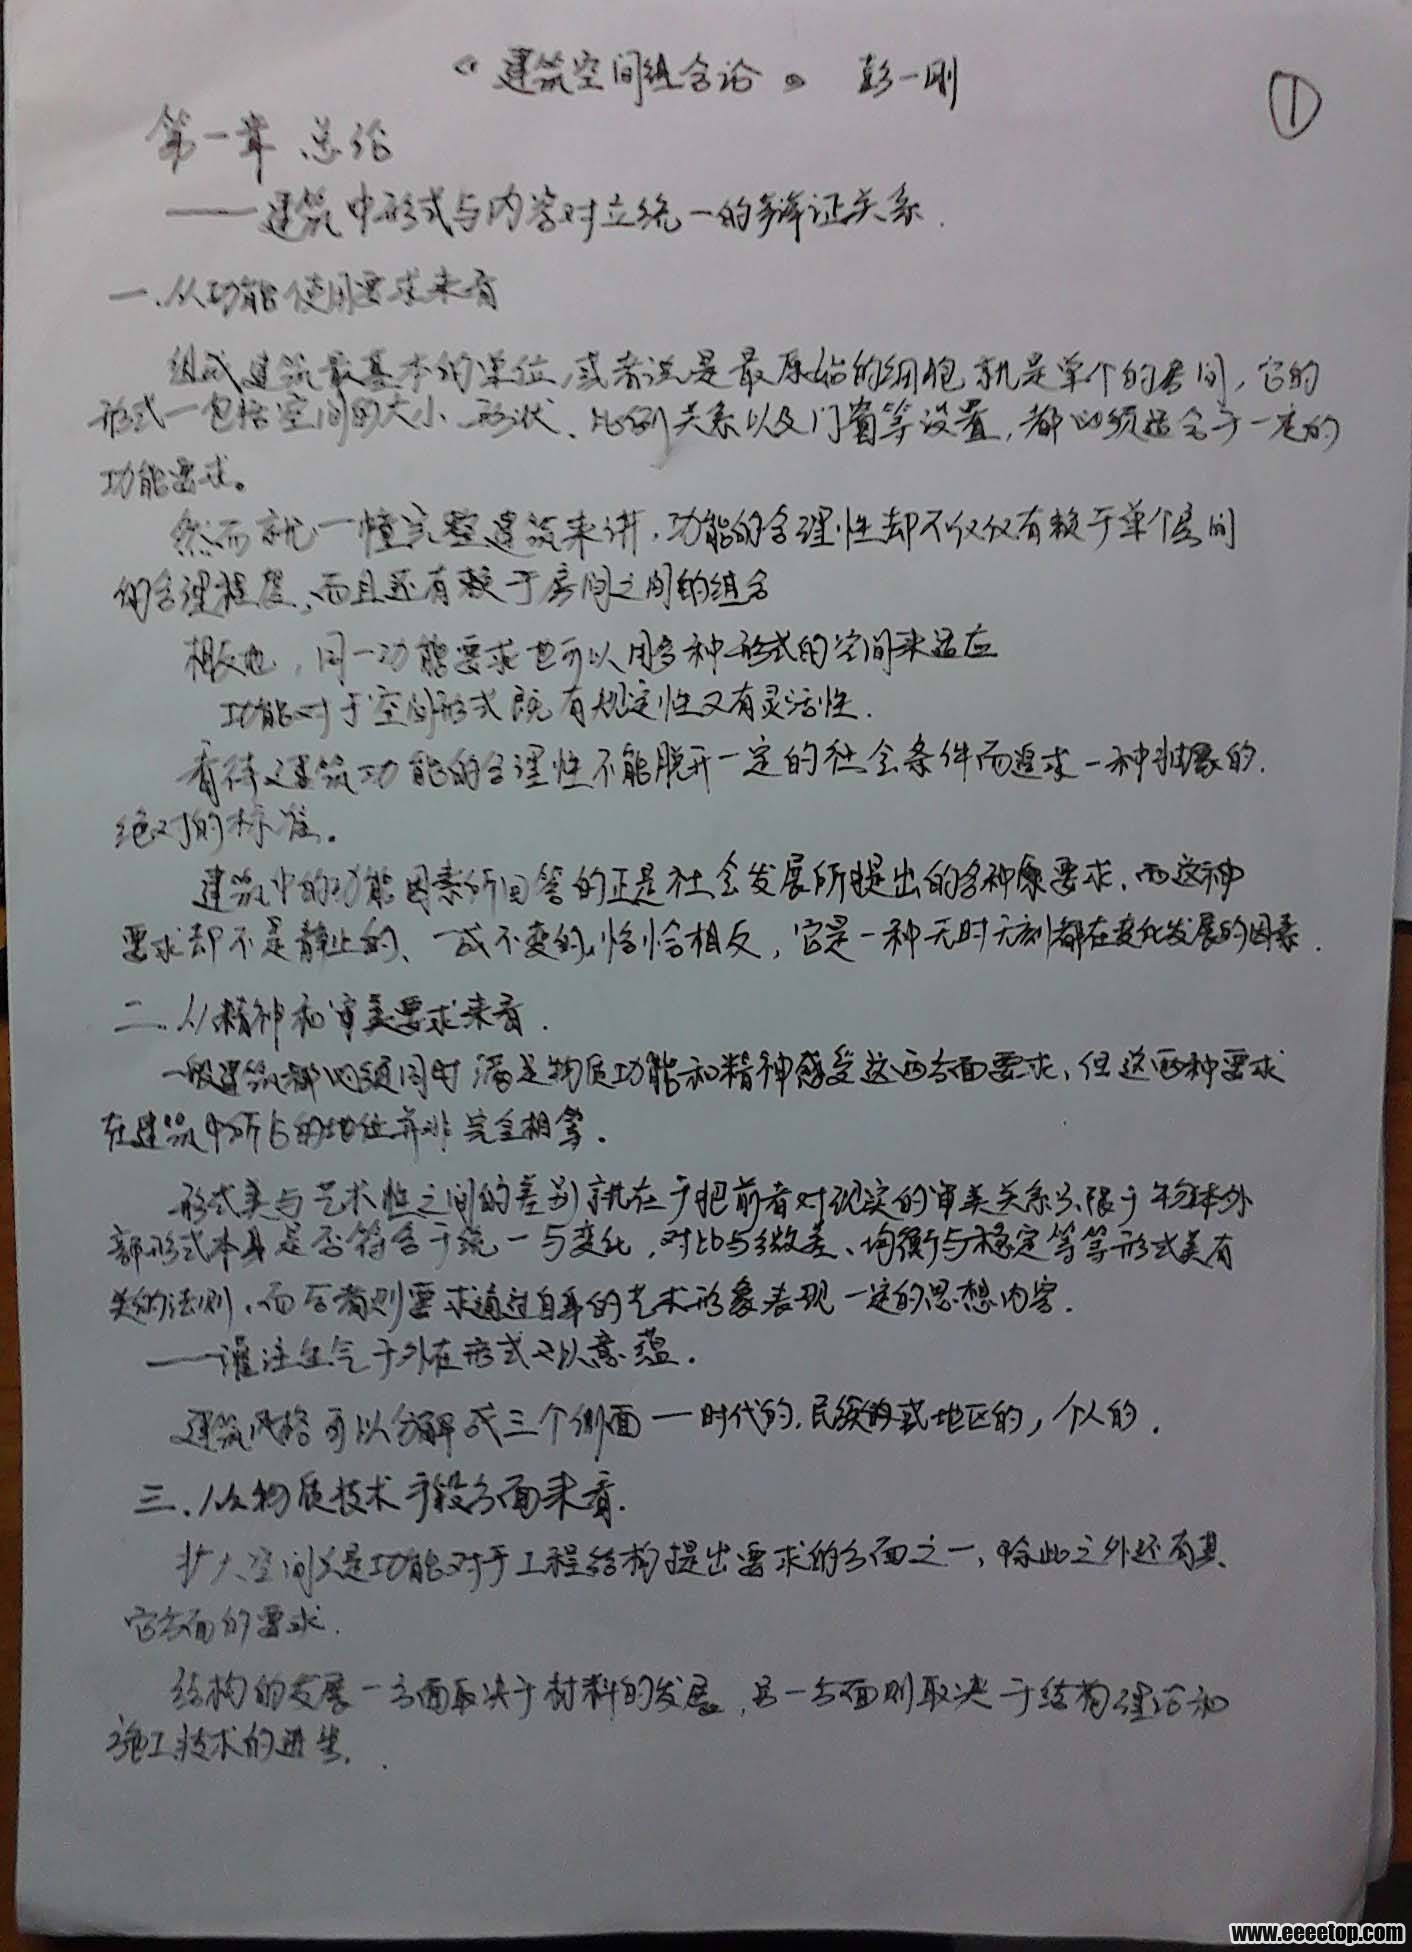 《建筑空间组合论》 彭一刚
①
第一章 总论
——建筑中形式与内容对立统一的辩证关系.
一.从功能使用要求来看
组成建筑最基本的单位,或者说是最原始的细胞就是单个的房间,它的
形式—包括空间的大小、形状、比例关系以及门窗等设置,都必须适合于一定的
功能要求。
然而就一幢完整建筑来讲,功能的合理性却不仅仅有赖于单个房间
的合理程度,而且还有赖于房间之间的组合
相反地,同一功能要求也可以用多种形式的空间来适应
功能对于空间形式既有规定性又有灵活性.
看待建筑功能的合理性不能脱开一定的社会条件而追求一种抽象的.
绝对的标准。
建筑中的功能因素所回答的正是社会发展所提出的各种要求,而这种
要求却不是静止的、一成不变的,恰恰相反,它是一种无时无刻都在变化发展的因素.
二.从精神和审美要求来看.
一般建筑都必须同时满足物质功能和精神感受这两方面要求,但这两种要求
在建筑中所占的地位并非完全相等.
形式美与艺术性之间的差别就在于把前者对现实的审美关系只限于物体外
部形式本身是否符合于统一与变化,对比与微差、均衡与稳定等等形式美有
关的法则,而后者则要求通过自身的艺术形象表现一定的思想内容.
——灌注生气于外在形式以意蕴.
建筑风格可以分解成三个侧面—时代的,民族的或地区的,个人的.
三.从物质技术手段方面来看.
扩大空间仅是功能对于工程结构提出要求的方面之一,除此之外还有其
它方面的要求.
结构的发展一方面取决于材料的发展,另一方面则取决于结构理论和
施工技术的进步.
www.eeeetop.com